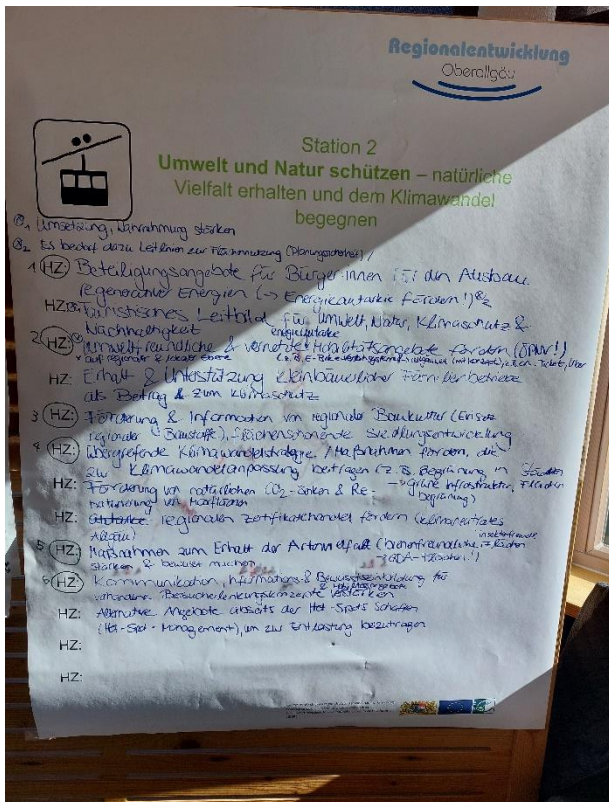 Regionalentwicklung
Oberallgäu
Station 2
Umwelt und Natur schützen – natürliche
Vielfalt erhalten und dem Klimawandel
begegnen
Umsetzung, stärken
Es bedarf dazu Leitlinien zur Flächennutzung (Planungssicherheit)
1 HZ: Beteiligungsangebote für Bürger:innen für den Ausbau
regenerativer Energien (→ Energieautarkie fördern!)
HZ: Touristisches Leitbild für Umwelt, Natur, Klimaschutz &
Nachhaltigkeit
2 HZ: Umweltfreundliche & vernetzte Mobilitätsangebote fördern (ÖPNV!)
auf regionaler & lokaler Ebene
HZ: Erhalt & Unterstützung kleinbäuerlicher Familienbetriebe
als Beitrag & zum Klimaschutz
3 HZ: Förderung & Information von regionaler Baukultur (Einsatz
regionaler Baustoffe), flächenschonende Siedlungsentwicklung
4 HZ: Übergreifende Klimawandelstrategie / Maßnahmen fördern, die
zur Klimawandelanpassung beitragen (z.B. Begrünung in Städten
→ grüne Infrastruktur, Fassadenbegrünung)
HZ: Förderung von natürlichen CO2-Senken & Re-
naturierung von Moorflächen
HZ: regionalen Zertifikatehandel fördern (klimaneutrales
Allgäu)
5 HZ: Maßnahmen zum Erhalt der Artenvielfalt (bienenfreundliche, insektenfreundl. Flächen
stärken & bewusst machen
6 HZ: Kommunikation, Informations- & Bewusstseinsbildung für
vorhandene Besucherlenkungskonzepte verstärken
HZ: Alternative Angebote abseits der Hot-Spots schaffen
(Hot-Spot-Management), um zur Entlastung beizutragen
HZ:
HZ: